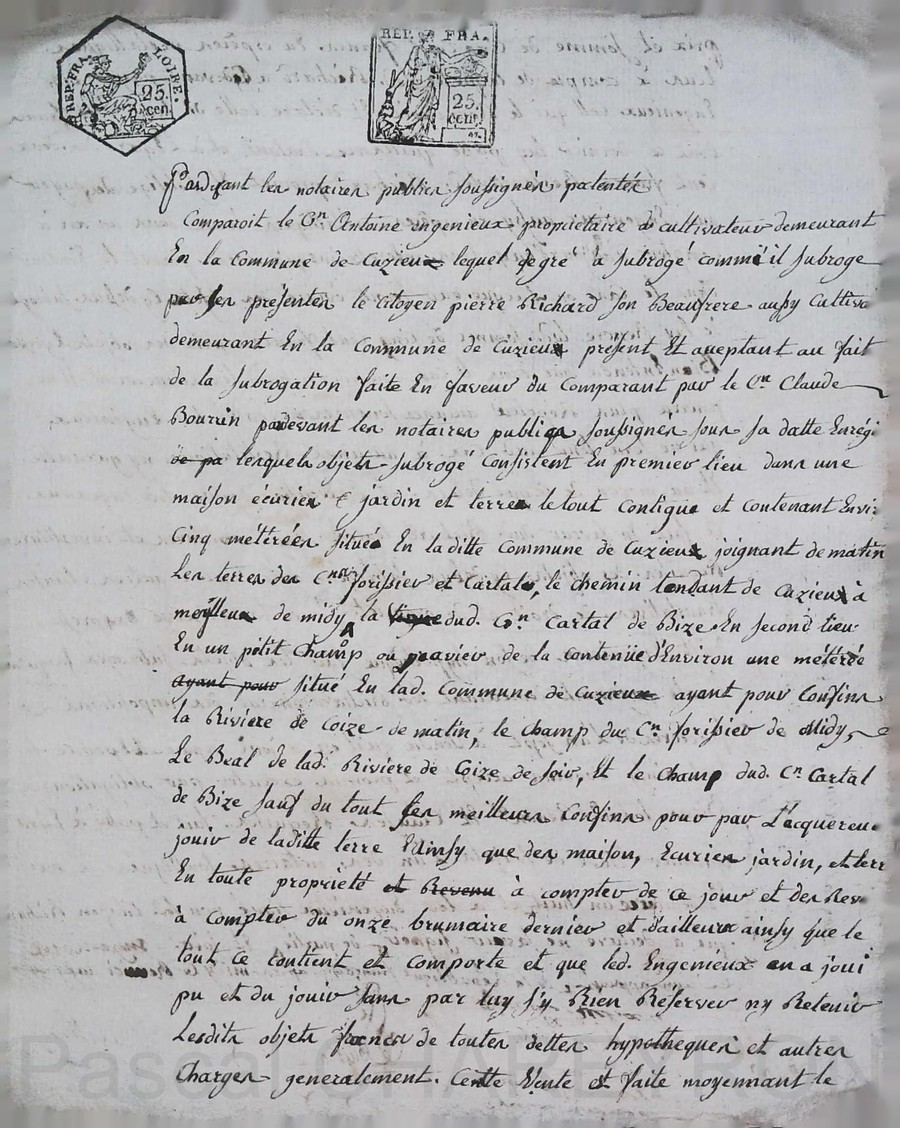 REP. FRA. LOIRE.
25. cen.
REP. FRA.
25. cent.
Pardevant les notaires publics soussignés patentés
Comparoit le Cn Antoine engenieux propriétaire & cultivateur demeurant
En la Commune de Cuzieux lequel de gré à subrogé comme il subroge
par ses présentes le Citoyen pierre Richard son Beaufrere aussy Cultiva
demeurant En la Commune de Cuzieux présent Et aceptant au fait
de la subrogation faite En faveur du Comparant par le Cn Claude
Bourrin padevant les notaires publiqs soussignés sous sa datte Enrégi
de pa lesquels objets subrogé Consistent En premier lieu dans une
maison écuries & jardin et terres le tout Contigue et Contenant Envi
Cinq métérées situés En laditte Commune de Cuzieux joignant de matin
Les terres des Cns forissier et Cartal, le chemin tendant de Cuzieux à
meylleux de midy, la vigne dud. Cn Cartal de Bize En second lieu
En un pétit Champ ou gravier de la contenüe d'Environ une métérée
ayant pour situé En lad. Commune de Cuzieux ayant pour Confins
la Riviere de Coize de matin, le champ du Cn forissier de Midy,
Le Beal de lad. Riviere de Coize de soir, Et le Champ dud. Cn Cartal
de Bize sauf du tout ses meilleurs Confins pour par L'acquereur
jouir de laditte terre Edinsy que des maison, Ecuries jardin, et terr
En toute propriété et Revenu à compter de ce jour et des Rev
à compter du onze brumaire dernier et d'ailleurs ainsy que le
tout ce contient et comporte et que led. Engenieux en a joui
pu et du jouir sans par luy s'y Rien Réserver ny Retenir
Lesdits objets francs de toutes dettes hypotheques et autres
Charges generalement. Cette Vente et faite moyennant le